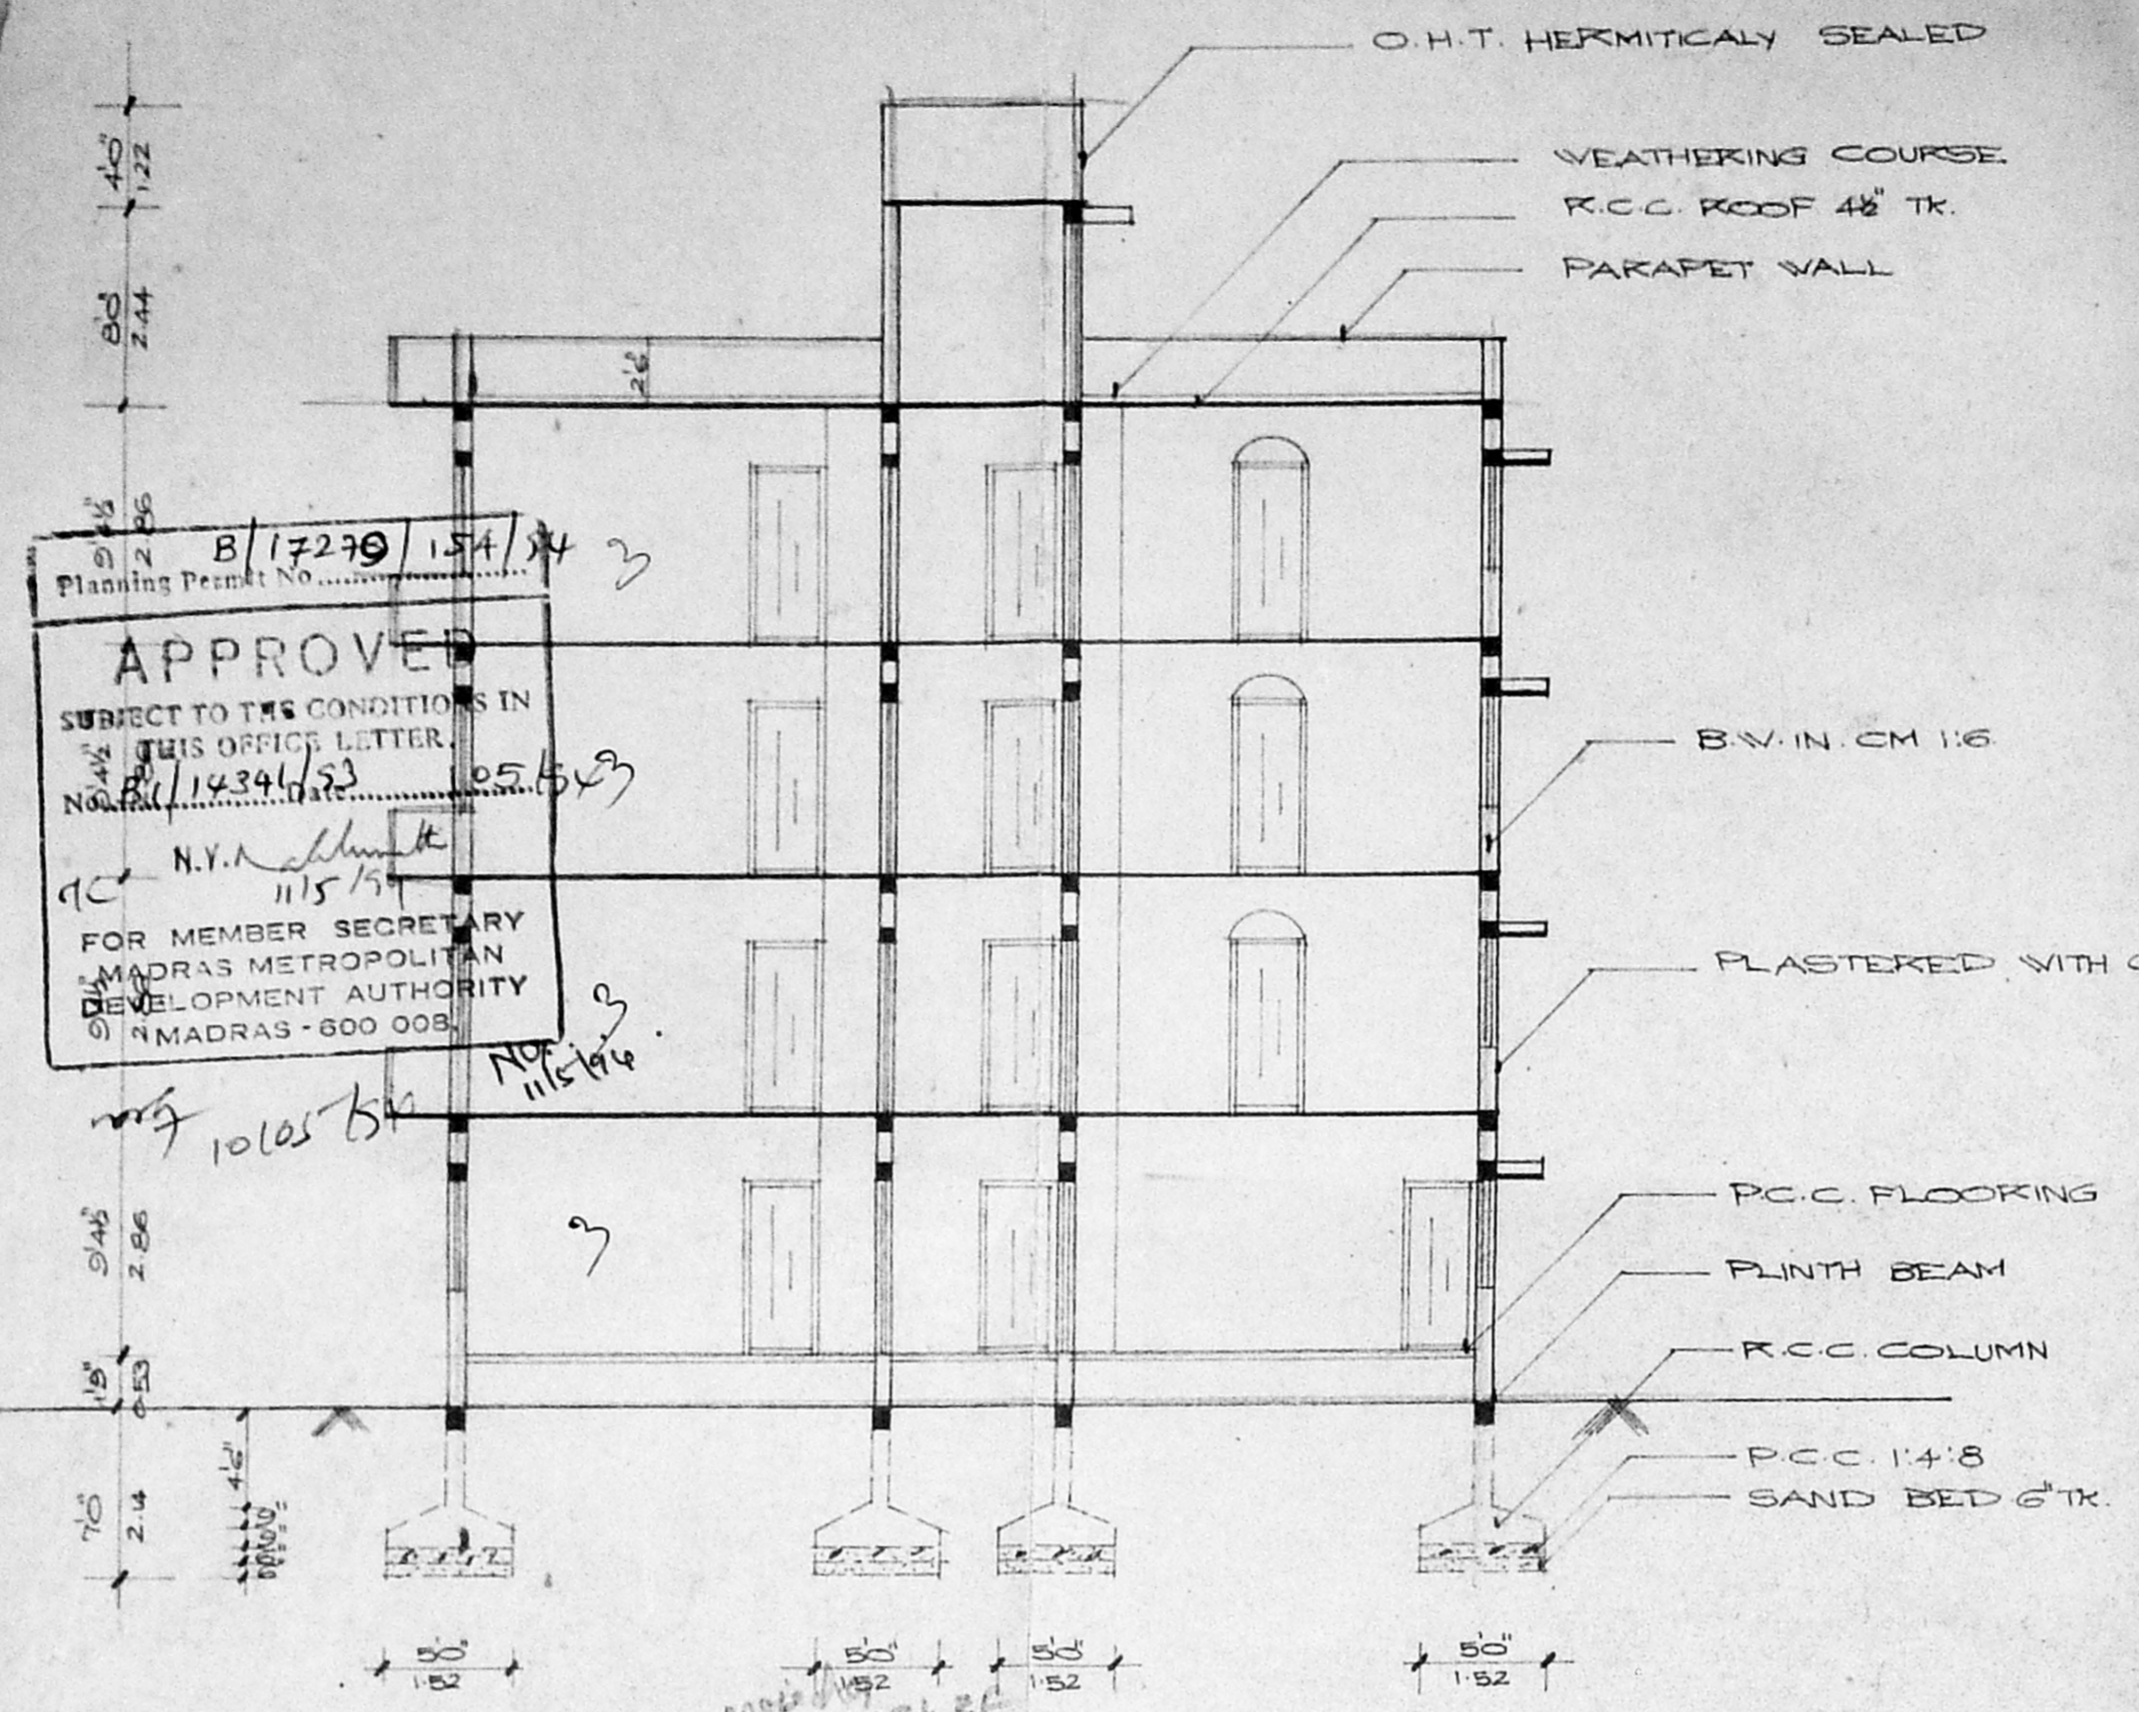 O.H.T. HERMITICALY SEALED
WEATHERING COURSE
R.C.C. ROOF 4½" TK.
PARAPET WALL
B.W. IN. CM 1:6
PLASTERED WITH C
P.C.C. FLOORING
PLINTH BEAM
R.C.C. COLUMN
P.C.C. 1:4:8
SAND BED 6" TK.
4'0"
1.22
8'0"
2.44
2'6"
9'4½"
2.86
B/17279/154/94
Planning Permit No
APPROVED
SUBJECT TO THE CONDITIONS IN
THIS OFFICE LETTER.
No. B1/14341/93 Date
N.V.
11/5/94
FOR MEMBER SECRETARY
MADRAS METROPOLITAN
DEVELOPMENT AUTHORITY
MADRAS - 600 008.
9'4½"
9'4½"
3
3
3
3
11/5/94
9'4½"
2.86
0.53
4'6"
7'0"
5'0"
1.52
5'0"
1.52
5'0"
1.52
5'0"
1.52